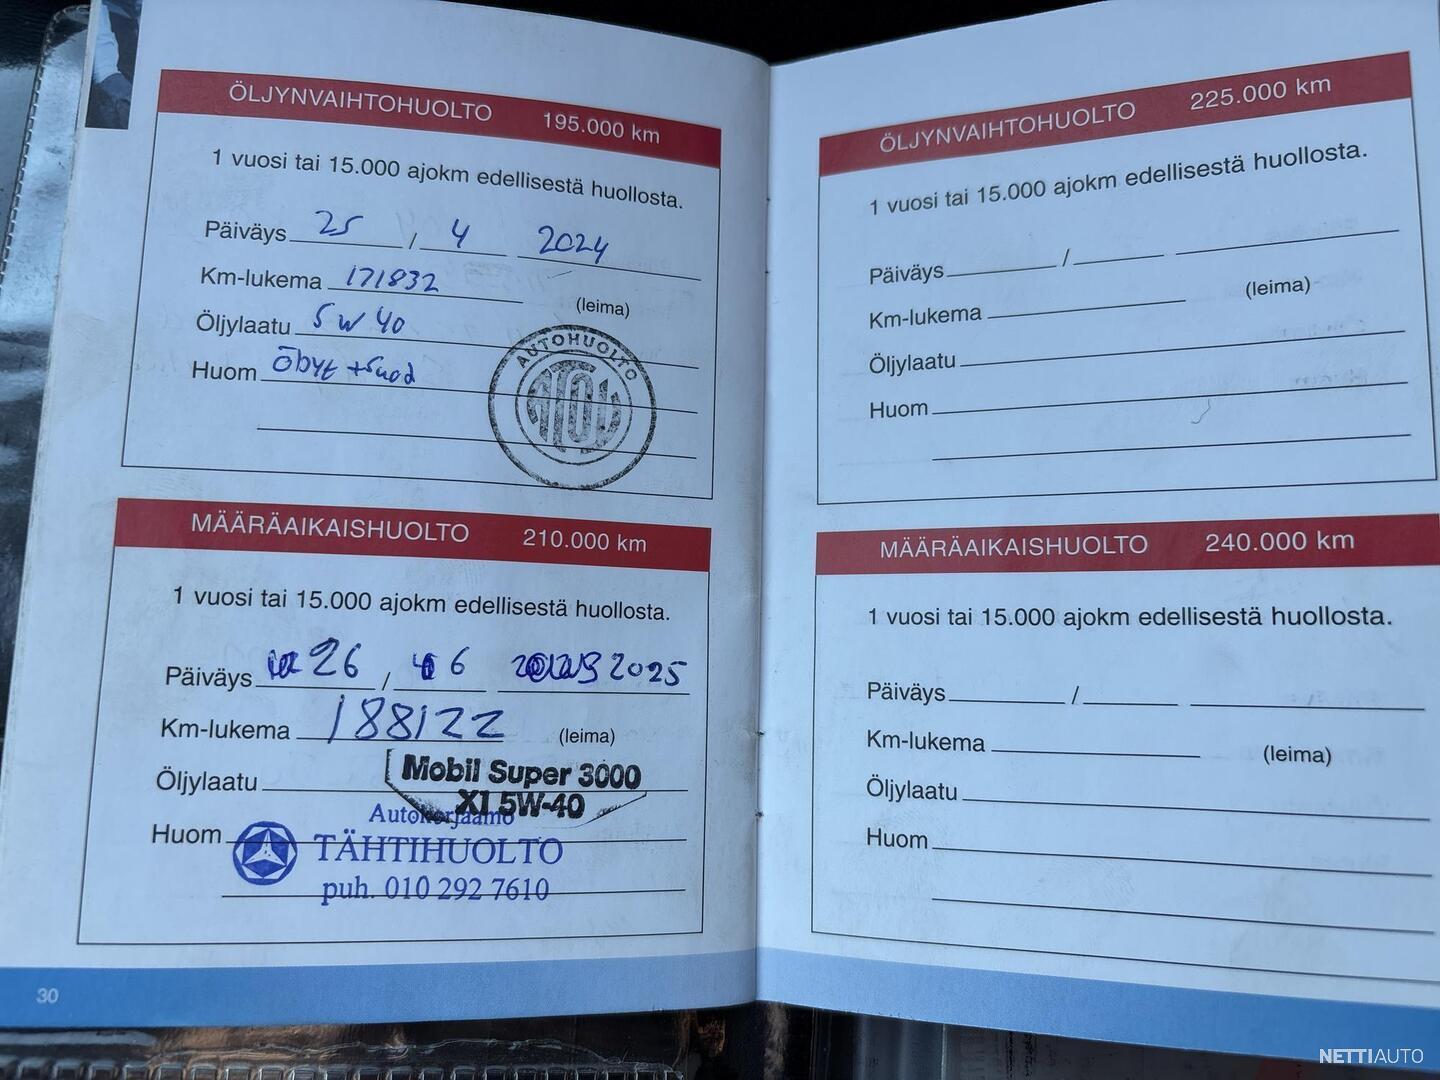 ÖLJYNVAIHTOHUOLTO 195.000 km
1 vuosi tai 15.000 ajokm edellisestä huollosta.
Päiväys 25 / 4 2024
Km-lukema 171832
(leima)
Öljylaatu 5W40
Huom Öbyt +Suod
AUTOHUOLTO
MÄÄRÄAIKAISHUOLTO 210.000 km
1 vuosi tai 15.000 ajokm edellisestä huollosta.
Päiväys 26 / 6 2025
Km-lukema 188122
(leima)
Öljylaatu Mobil Super 3000
X1 5W-40
Autokorjaamo
Huom TÄHTIHUOLTO
puh. 010 292 7610
30
ÖLJYNVAIHTOHUOLTO 225.000 km
1 vuosi tai 15.000 ajokm edellisestä huollosta.
Päiväys /
Km-lukema (leima)
Öljylaatu
Huom
MÄÄRÄAIKAISHUOLTO 240.000 km
1 vuosi tai 15.000 ajokm edellisestä huollosta.
Päiväys /
Km-lukema (leima)
Öljylaatu
Huom
NETTIAUTO